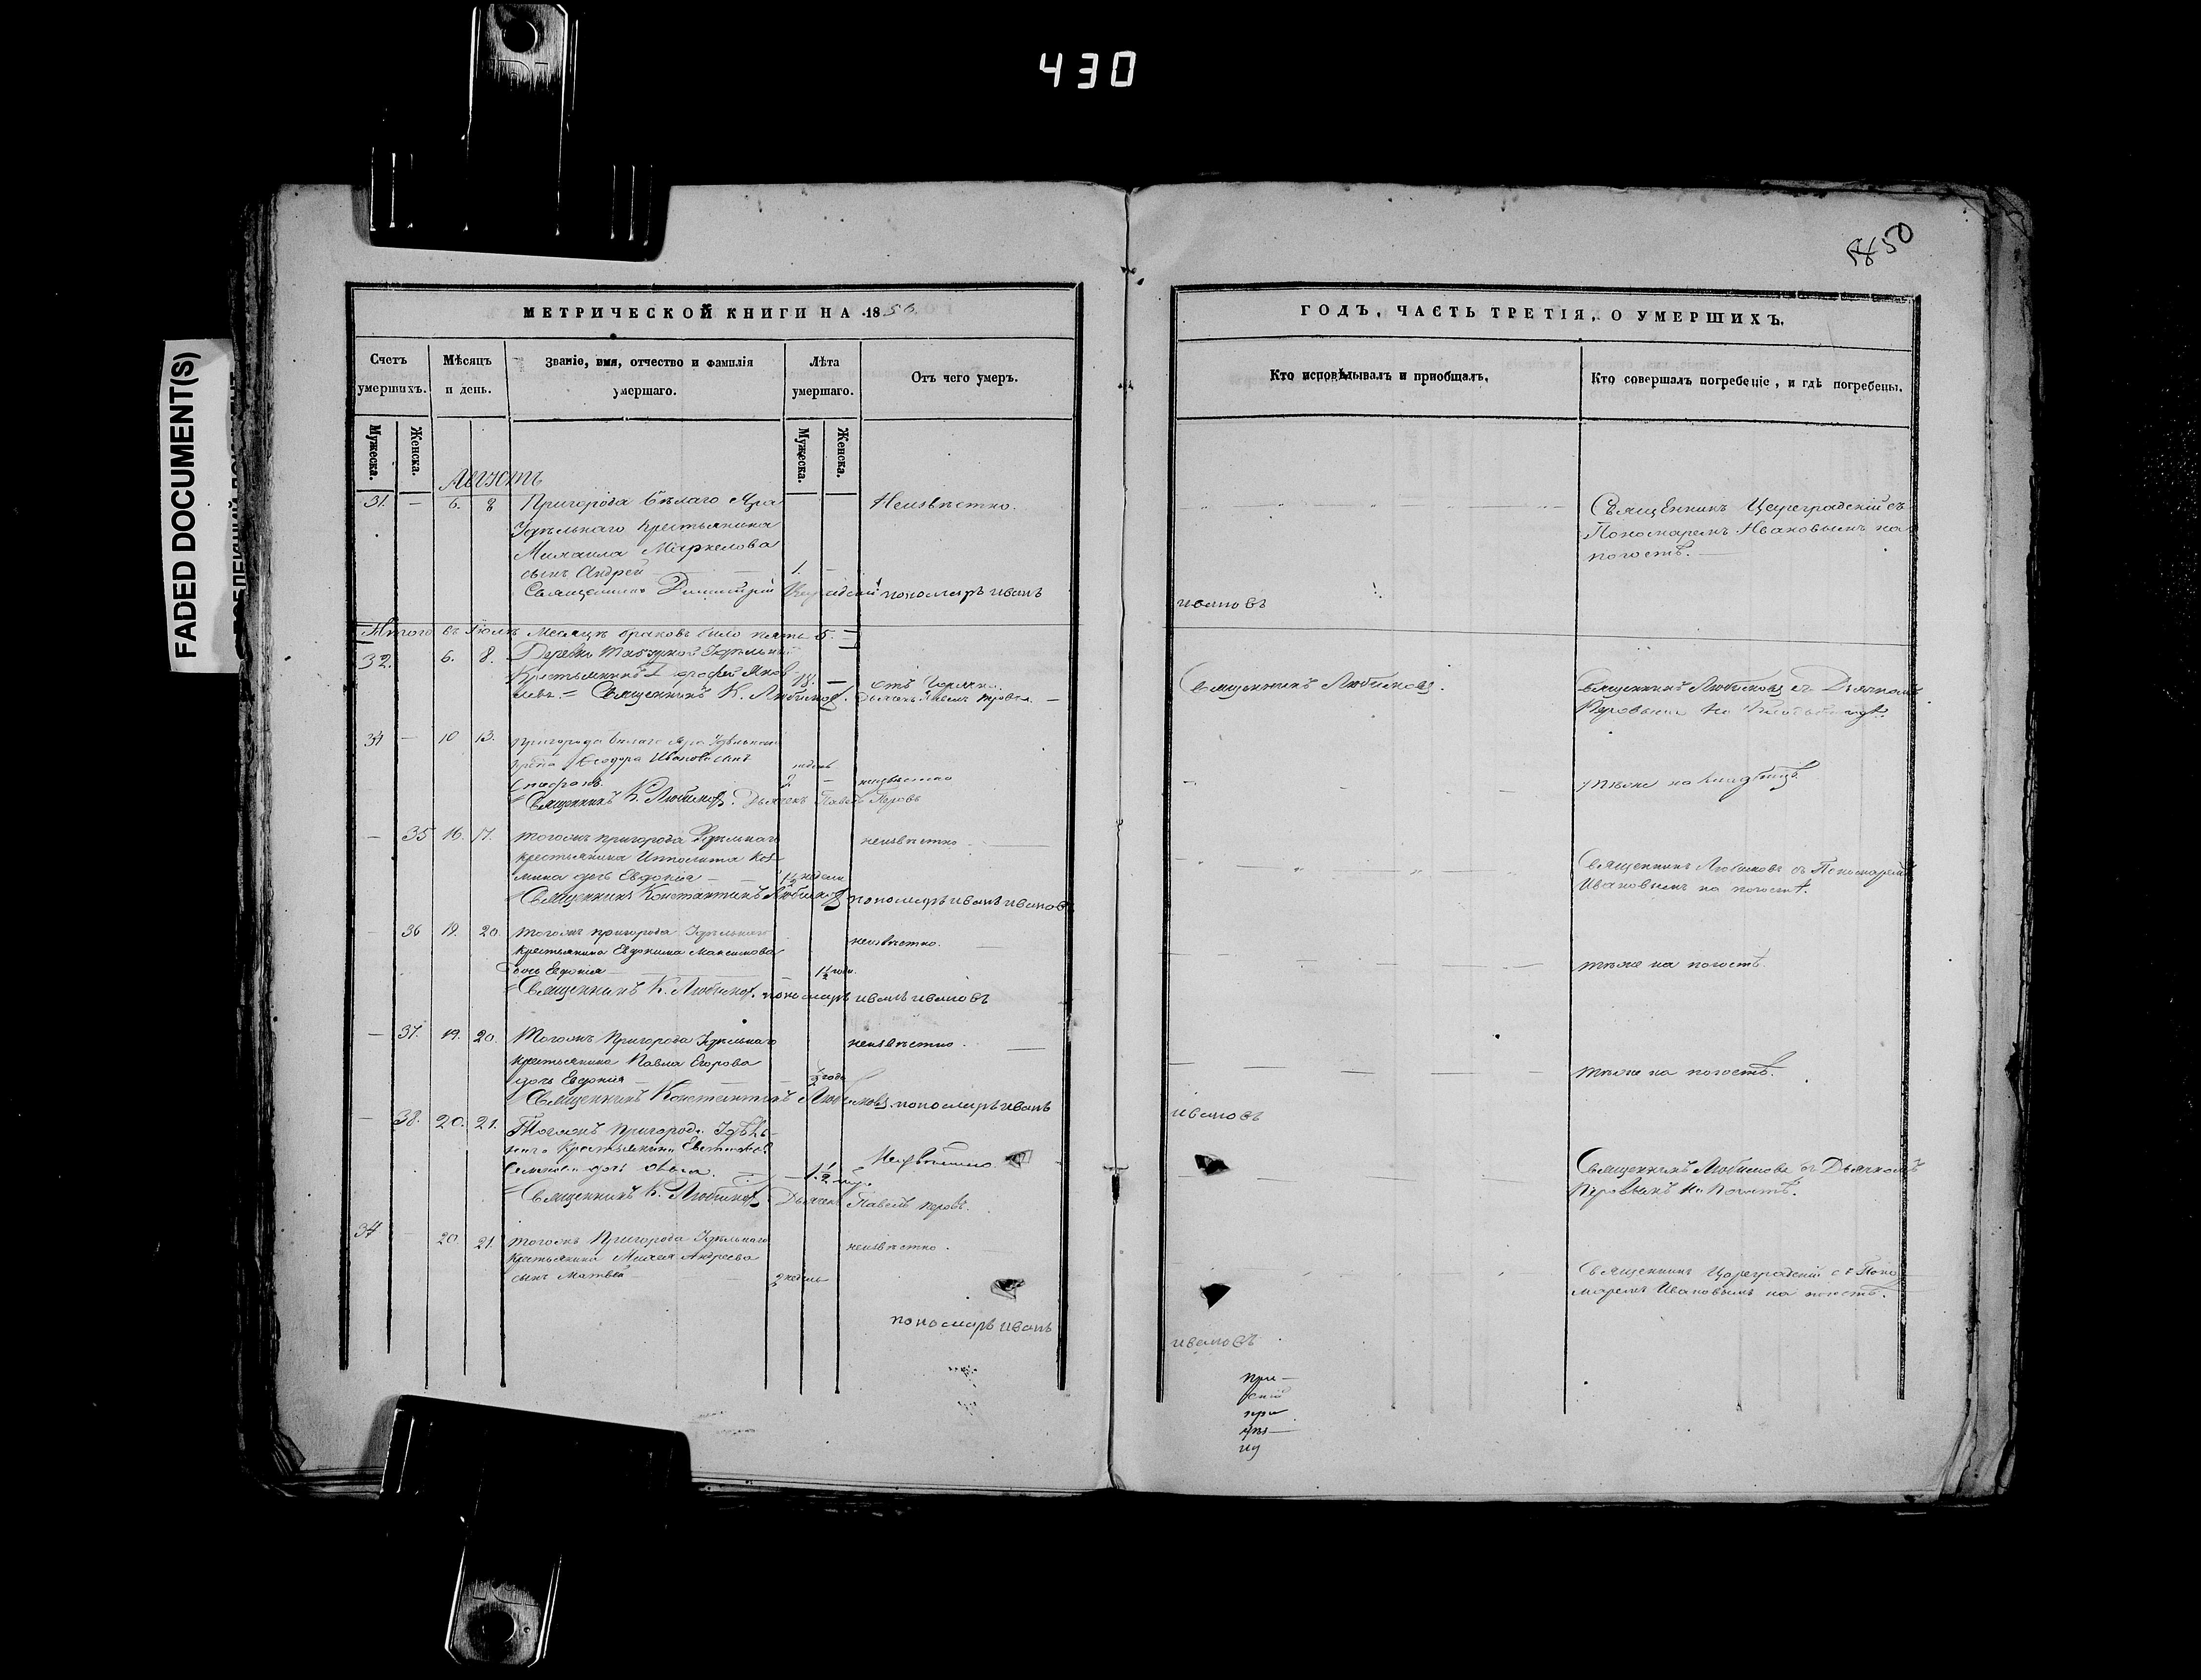 430
50
FADED DOCUMENT(S)
МЕТРИЧЕСКОЙ КНИГИ НА 1856.
ГОДЪ, ЧАСТЬ ТРЕТІЯ, О УМЕРШИХЪ.
Счетъ умершихъ.
Мѣсяцъ и день.
Званіе, имя, отчество и фамилія умершаго.
Лѣта умершаго.
Отъ чего умеръ.
Кто исповѣдывалъ и приобщалъ.
Кто совершалъ погребеніе, и гдѣ погребены.
Мужеска. Женска.
Мужеска. Женска.
Августъ
31. — 6. 8 Пригорода Бѣлаго Яра Неизвѣстно.
Удѣльнаго Крестьянина
Михаила Маркелова
сынъ Андрей 1. —
Священникъ Димитрій пономарь иванъ
ивановъ
Священникъ Цареградскій съ
Пономаремъ Ивановымъ на
погостѣ.
Итого въ Іюлѣ Месяцѣ браковъ было пять 5.
32. 6. 8. Деревни Удѣльный
Крестьянинъ 18. — отъ
Священникъ К. Любимовъ. Дьячекъ Павелъ Перовъ
Священникъ Любимовъ.
Священникъ Любимовъ съ Дьячкомъ
Перовымъ на
34 — 10 13. Пригорода Бѣлаго Яра Удѣльнаго
Ѳеодора Иванова сынъ недель
2. — неизвѣстно
Священникъ К. Любимовъ. Дьячекъ Павелъ Перовъ
— 35 16. 17. тогожъ пригорода Удѣльнаго неизвѣстно
крестьянина Ипполита Коз-
мина дочь Евдокія 1½ недели
Священникъ Константинъ Любимовъ пономарь иванъ ивановъ
Священникъ Любимовъ съ Пономаремъ
Ивановымъ на погостѣ.
— 36 19. 20. тогожъ пригорода Удѣльнаго неизвѣстно.
крестьянина Евдокима Максимова
дочь Евдокія 1½ года.
Священникъ К. Любимовъ. пономарь иванъ ивановъ
тѣже на погостѣ.
— 37. 19. 20. Тогожъ Пригорода Удѣльнаго неизвѣстно.
крестьянина Павла Егорова
дочь Евдокія ½ года
Священникъ Константинъ Любимовъ. пономарь иванъ
ивановъ
тѣже на погостѣ.
— 38. 20. 21. Тогожъ Пригорода Удѣль-
наго Крестьянина
дочь 1½ Неизвѣстно.
Священникъ К. Любимовъ Дьячекъ Павелъ Перовъ.
Священникъ Любимовъ съ Дьячкомъ
Перовымъ на Погостѣ.
20. 21. тогожъ Пригорода Удѣльнаго неизвѣстно.
Крестьянина Андреева
сынъ Матвей 2 недель
пономарь иванъ
ивановъ
Священникъ Цареградскій съ Поно-
маремъ Ивановымъ на погостѣ.
при—
скій
при